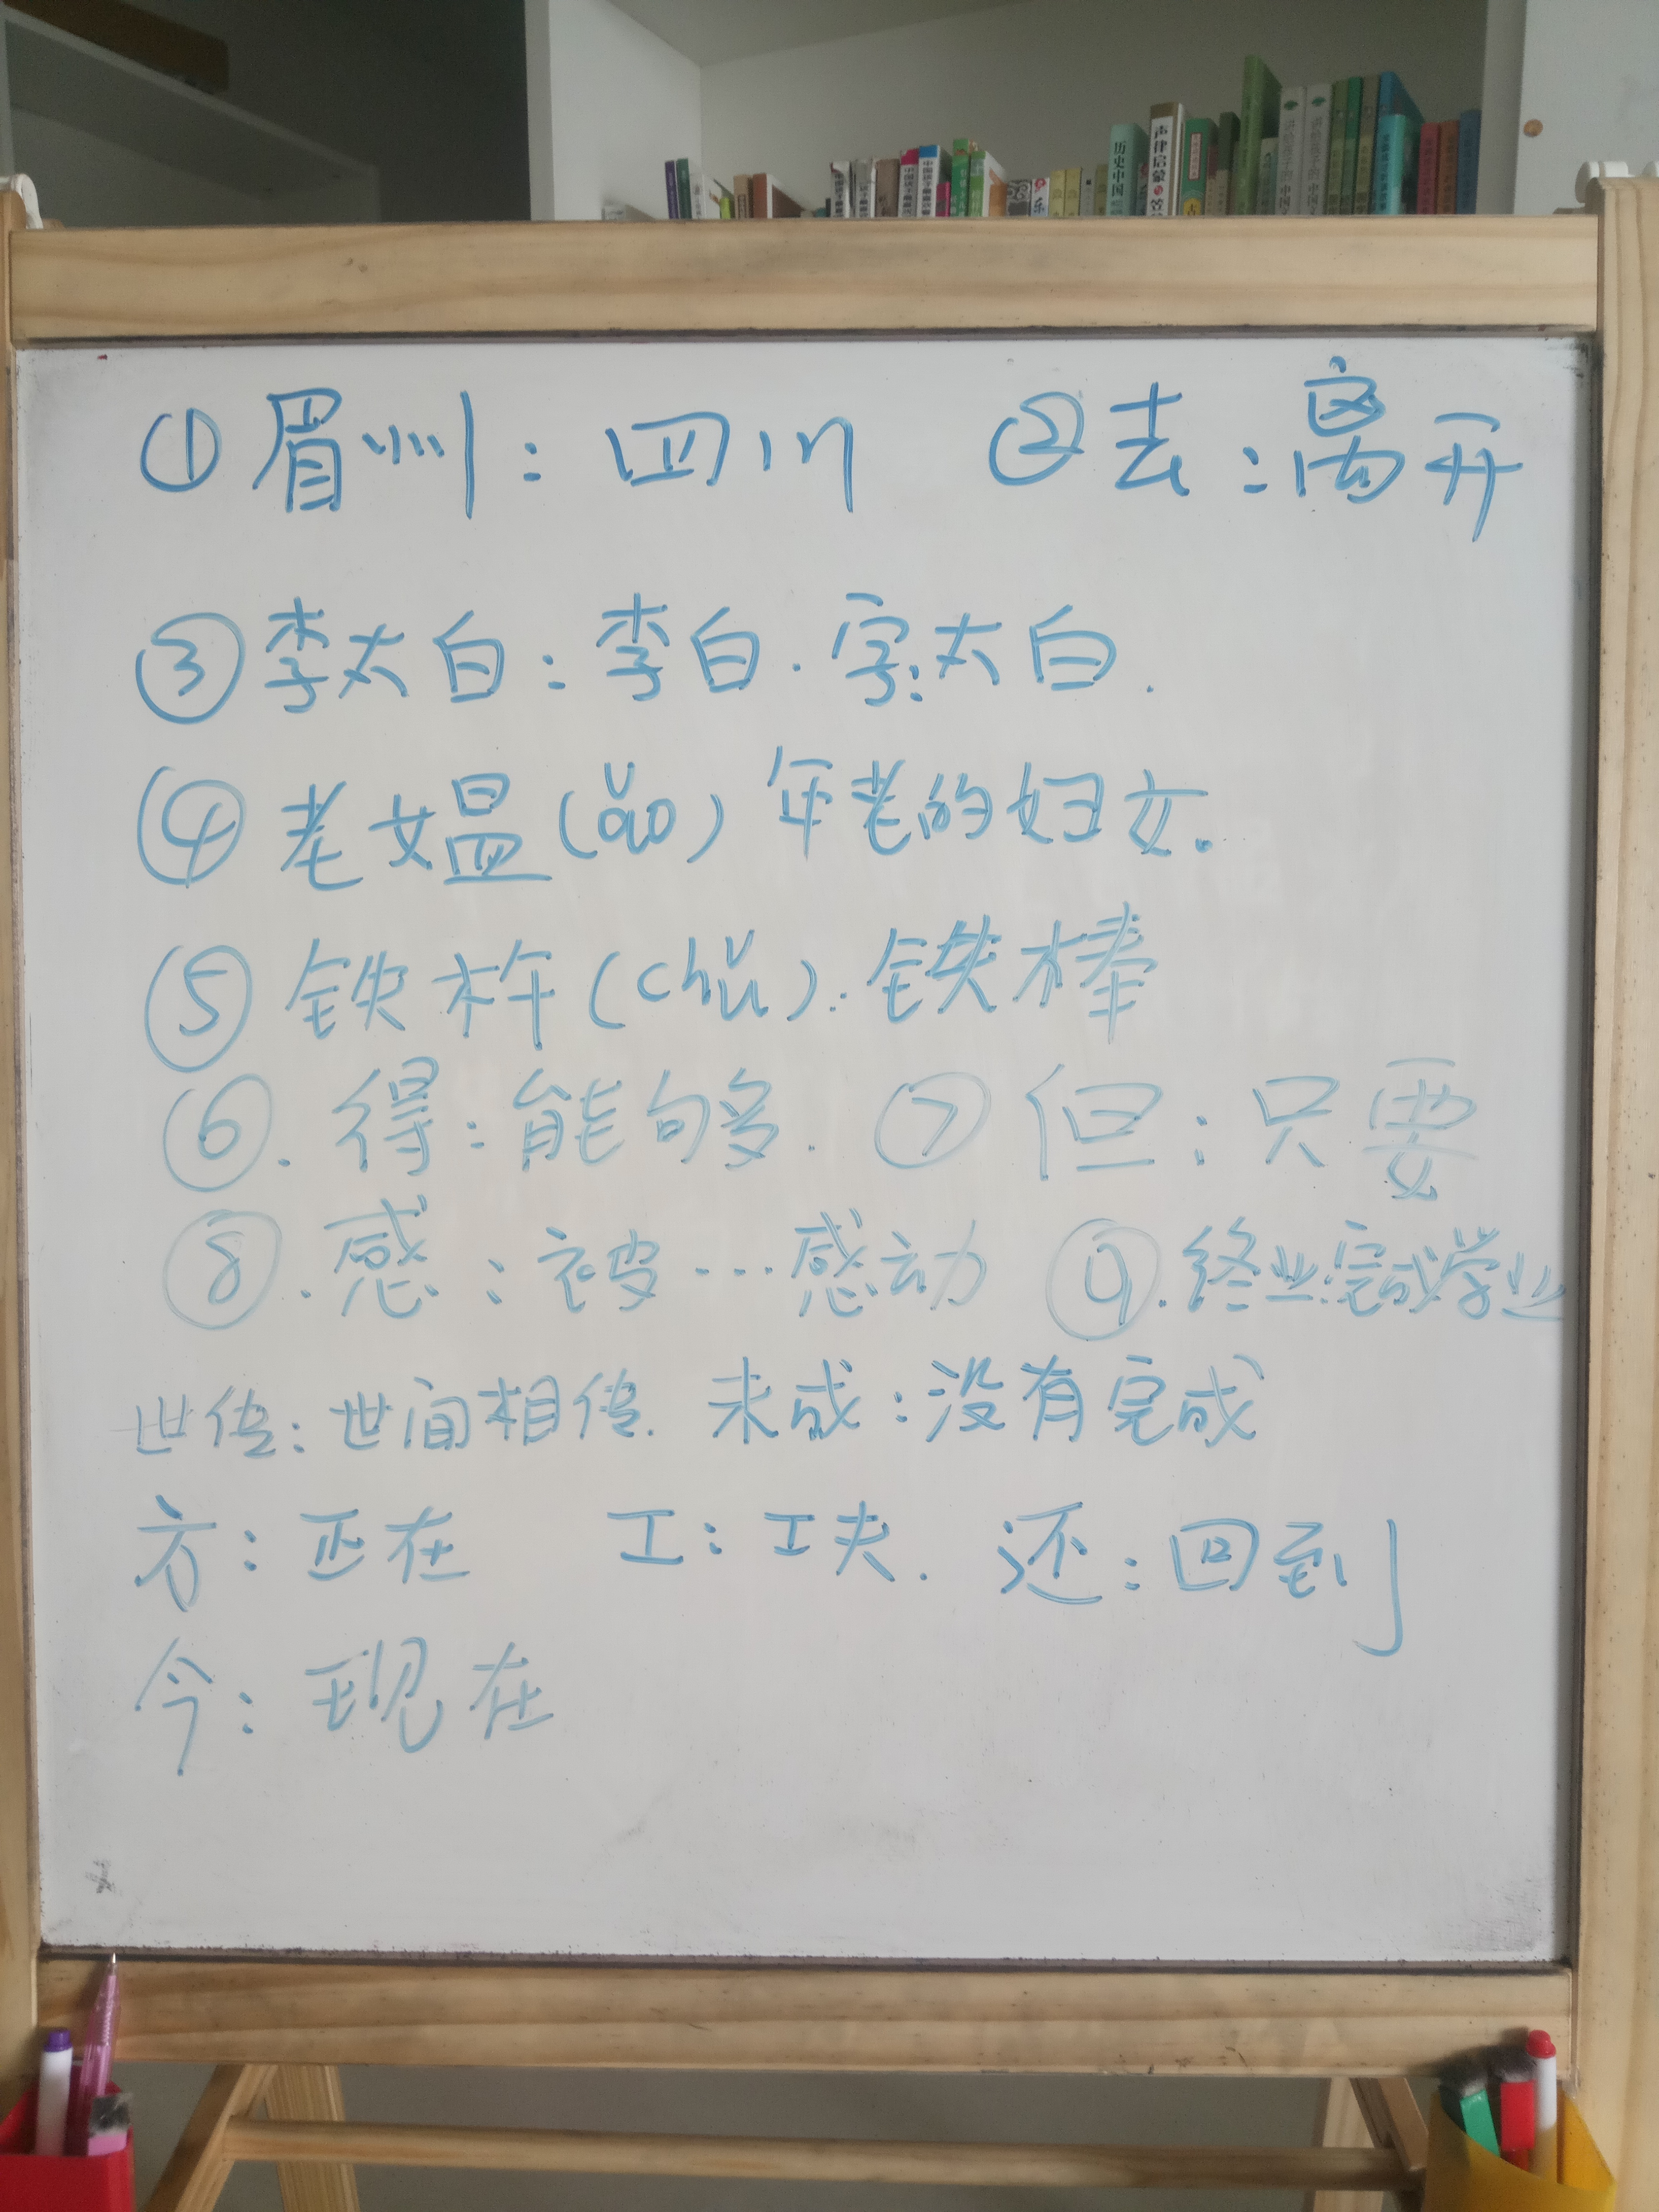 历史中国
声律启蒙
①眉州：四川 ②去：离开
③李太白：李白.字：太白.
④老媪(ǎo)年老的妇女。
⑤铁杵(chǔ)：铁棒
⑥.得：能够. ⑦但：只要
⑧.感：被…感动 ⑨.终业：完成学业
世传：世间相传. 未成：没有完成
方：正在 工：工夫. 还：回到
今：现在